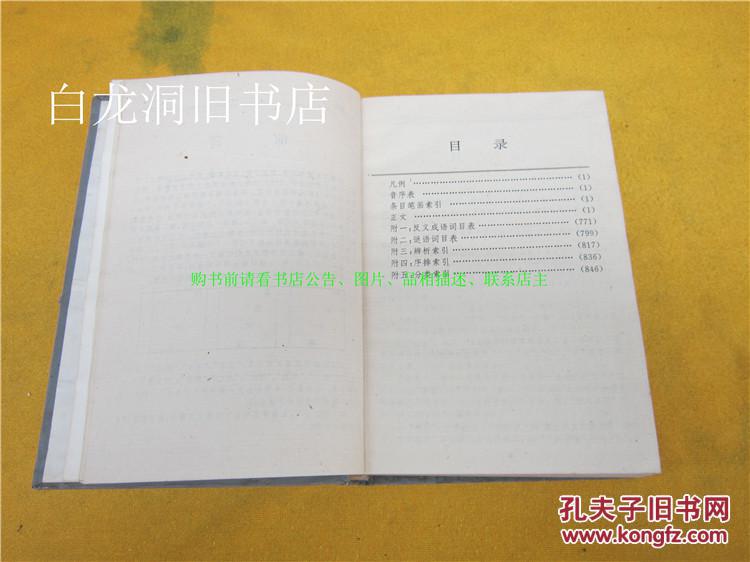 白龙洞旧书店
目 录
凡例 ……………………………………… (1)
音序表 ……………………………………… (1)
条目笔画索引 ……………………………………… (1)
正文 ……………………………………… (1)
附一：反义成语词目表 ……………………………………… (771)
附二：谜语词目表 ……………………………………… (799)
附三：辨析索引 ……………………………………… (817)
附四：序排索引 ……………………………………… (836)
附五：分类索引 ……………………………………… (846)
购书前请看书店公告、图片、品相描述、联系店主
孔夫子旧书网
www.kongfz.com